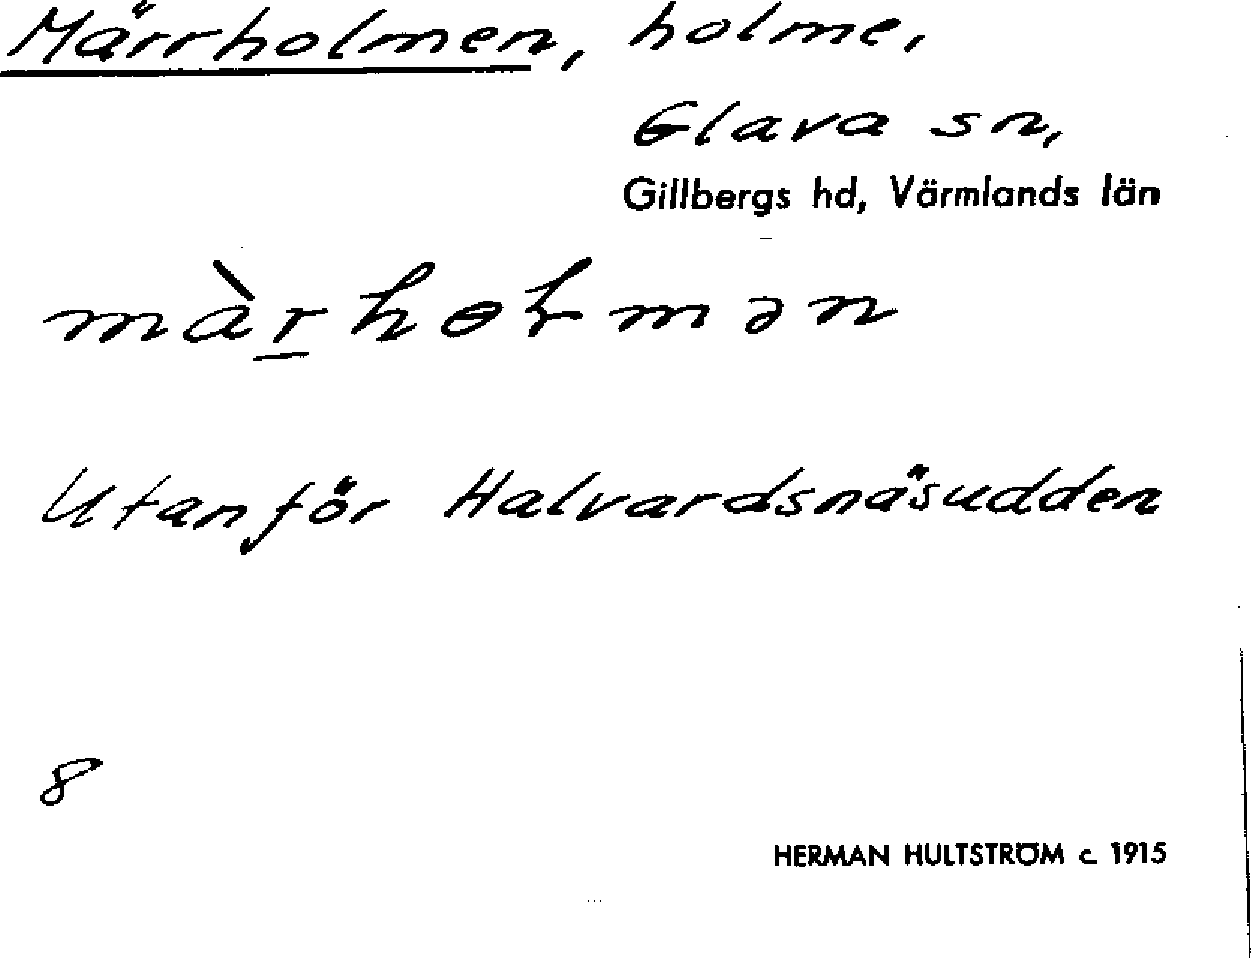 Märrholmen, holme,
Glava sn,
Gillbergs hd, Värmlands län
màr̲hɵɫmən
Utanför Halvardsnäsudden
8
HERMAN HULTSTRÖM c. 1915